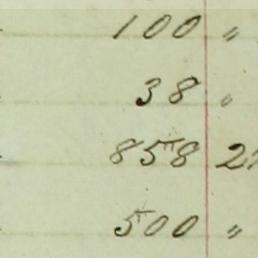 100 "
38 "
858 2
500 "